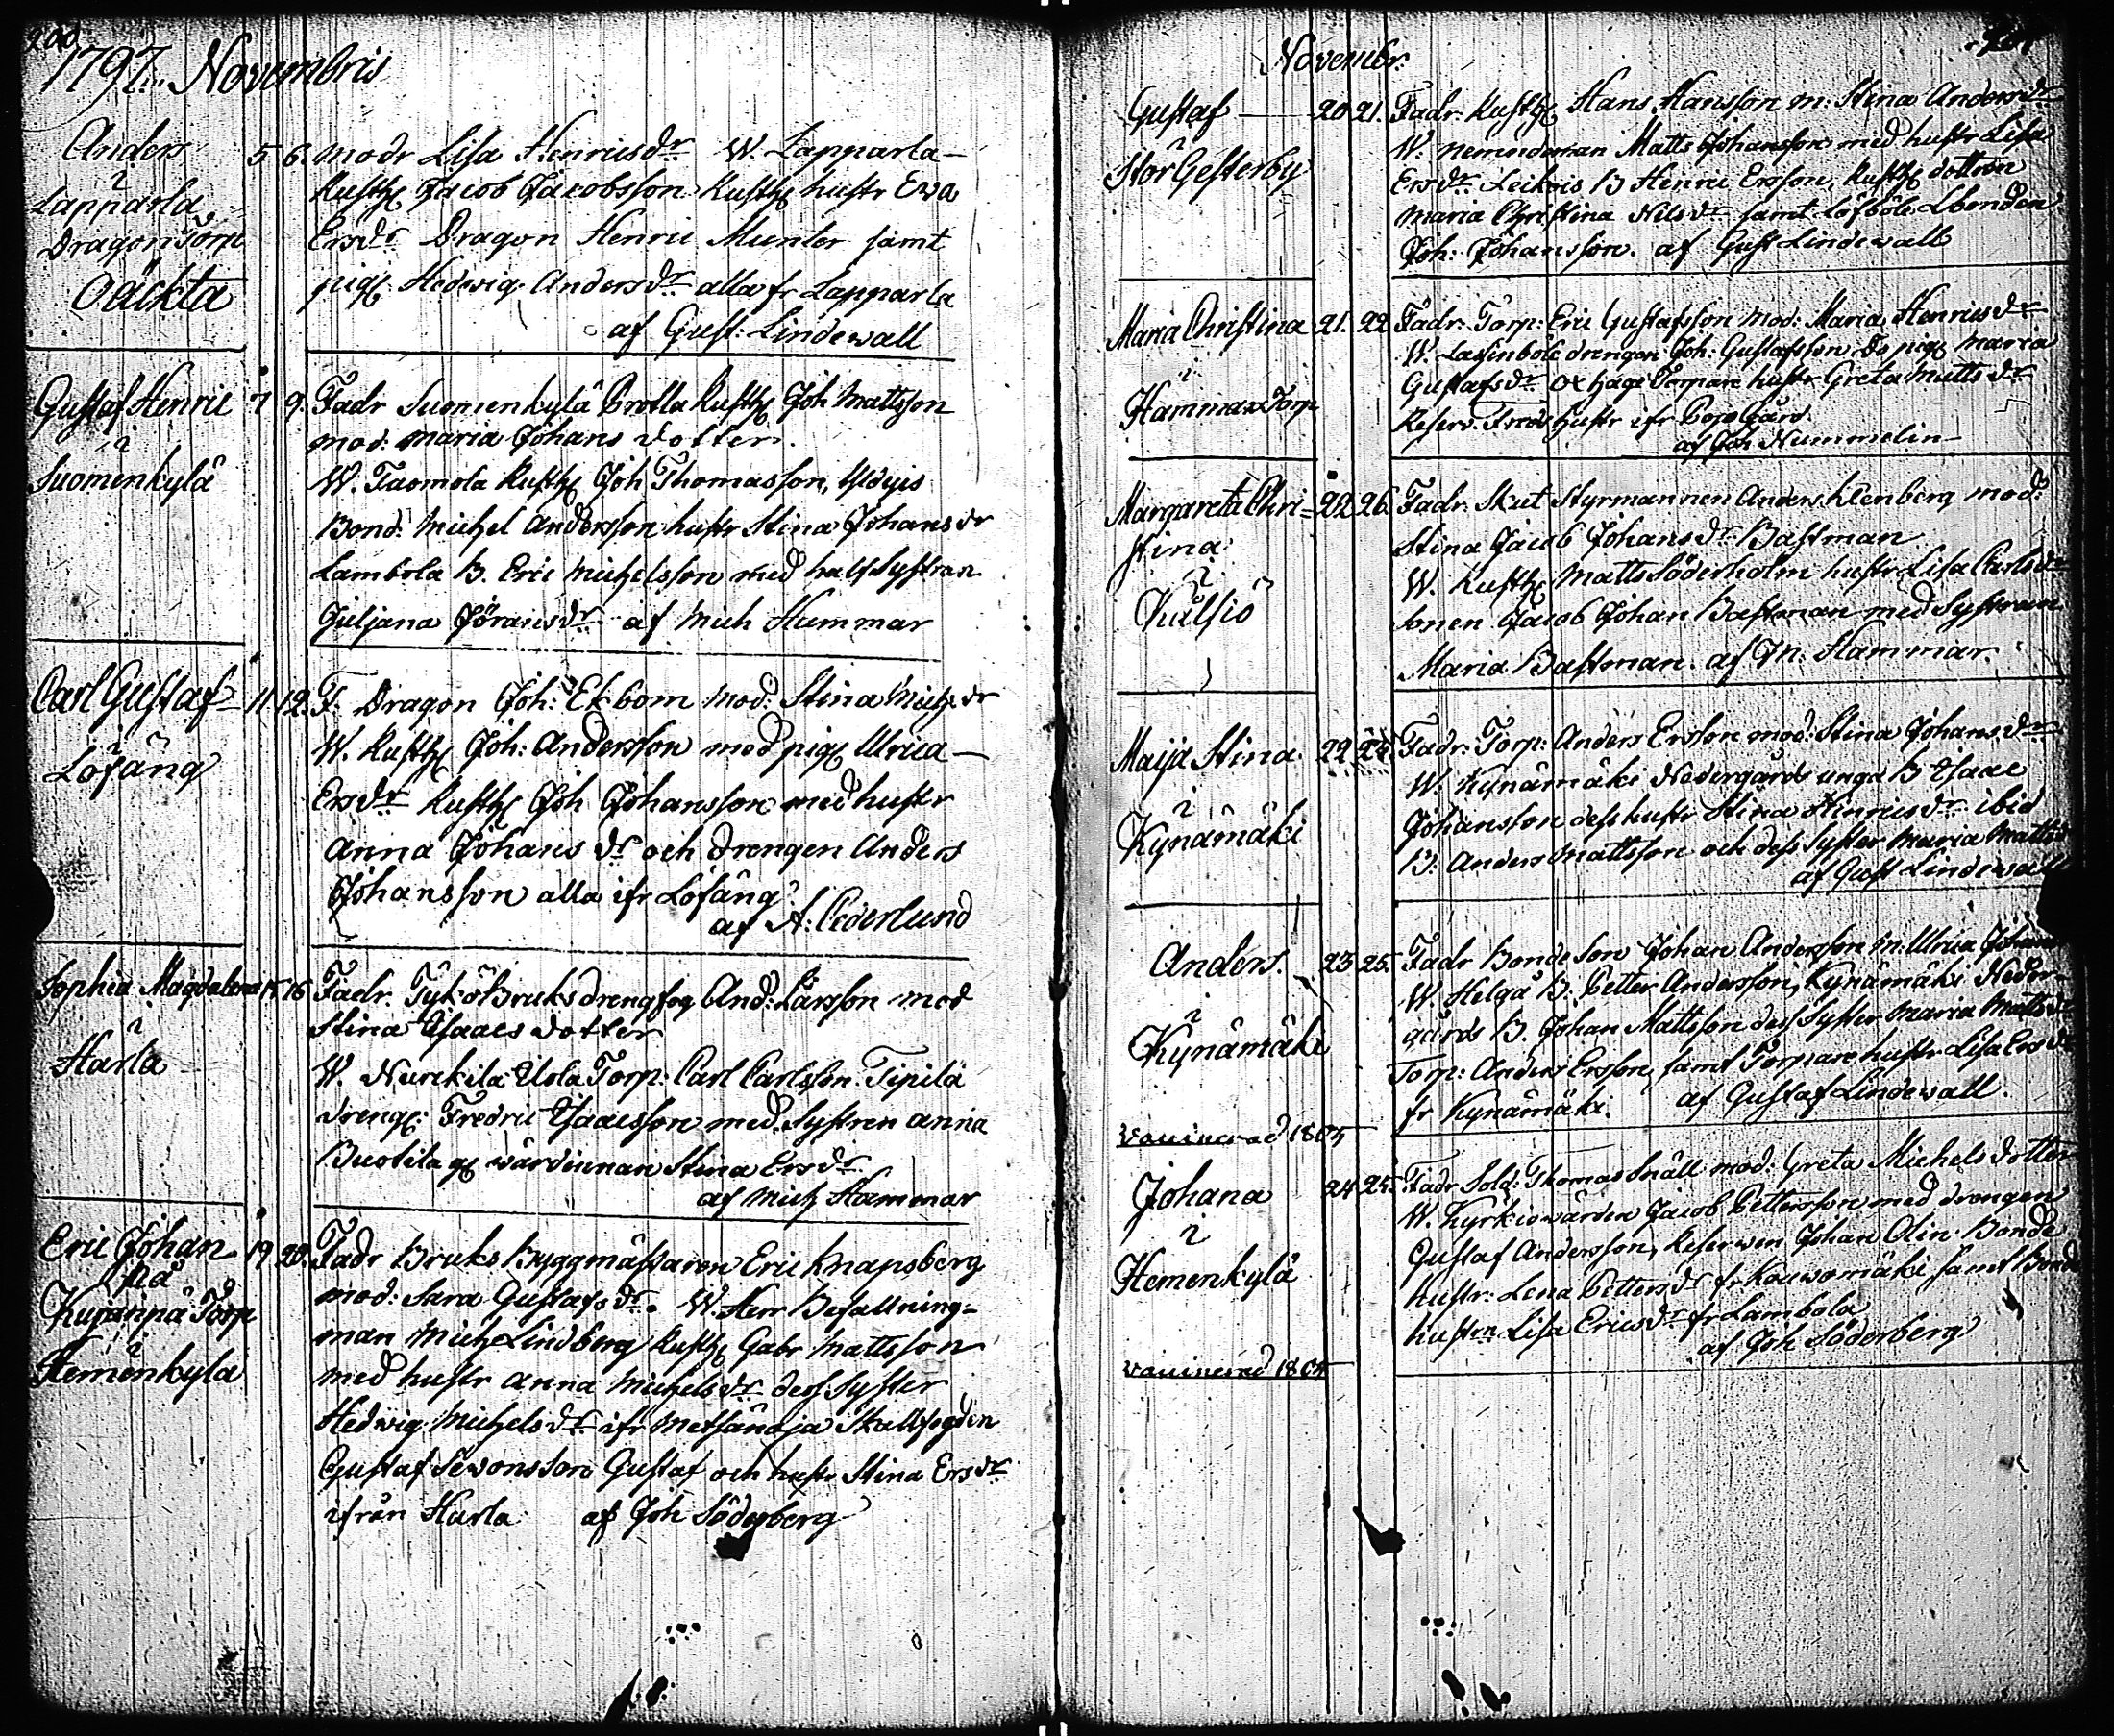 200
1797. Novembris
Anders
i
Lapparla
Dragon Torp
Oäckta
5 6. modr Lisa Henricsdr W. Lapparla
Rusth Jacob Jacobsson Rusth hustr Ewa
Ersdr Dragon Henric Munter samt
pig Hedwig Andersdr alla fr Lapparla
af Gust: Lindewall
Gustaf Henric
i
Suomenkylä
7 9. Fadr Suomenkylä Prolla Rusth Joh Mattsson
mod: Maria Johans dotter.
W. Taomola Rusth Joh Thomasson,
Bond. Michel Andersson hustr Stina Johansdr
Lambola B. Eric Michelsson med half Systran
Juljana Jöransdr af Mich Hammar
Carl Gustaf
i
Löfäng
11. 12. F. Dragon Joh: Ekbom Mod: Stina Michdr
W. Rusth Joh: Andersson med pig Ulrica
Ersdr Rusth Joh Johansson med hustr
Anna Johans dr och drengen Anders
Johansson alla ifr Löfäng
af A: Cederlund
Sophia Magdalena
i
Harla
15 16 Fadr. Tykö Bruks drengfog And: Larsson mod
Stina Isaacs dotter
W. Nurkila Uola Torp: Carl Carlsson Tipilä
dreng: Fredric Isaacsson med Systren Anna
Buotila g wärdinnan Stina Ersdr
af Mich Hammar
Eric Johan
på
Kujanpä Torp
i
Hemenkylä
19 20. Fadr Bruks Byggmästaren Eric Knapsberg
mod: Sara Gustafsdr. W. Herr Befallning-
man Mich Lindberg Rusth Gabr Mattsson
med hustr Anna Michelsdr dess Syster
Hedwig Michelsdr ifr Metsänoja Skallfogden
Gustaf Sewonsson Gustaf och hustr Stina Ersdr
ifrån Harla af Joh Söderberg
Novembr.
Gustaf
i
Stor Gesterby
20 21. Fadr: Rusth Hans Hansson m: Stina Andersdr
W. nemndeman Matts Johansson med hustr Lisa
Ersdr Leikois B Henric Ersson, Rusth dottren
Maria Christina Nilsdr samt Löfböle Lbonden
Joh: Johansson. af Gust Lindewall
Maria Christina
i
Hammar Torp
21. 22 Fadr: Torp: Eric Gustafsson Mod: Maria Henricsdr
W. Lassinböle drengen Joh: Gustafsson Do pig Maria
Gustafsdr Oxhaga Torpare hustr Greta Mattsdr
Reserv. Freds hustr ifr Bero Gård
af Joh Nummelin
Margareta Chri=
stina
i
Kulsiö
22 26. Fadr. Skut Styrmannen Anders Klenberg mod:
Stina Jacob Johansdr Bastman
W. Rusth Matts Söderholm hustr Lisa Carlsdr
Sonen Jacob Johan Bastman med Systran
Maria Bastman. af M: Hammar.
Maija Stina
i
Kynämäki
22 24. Fadr: Torp: Anders Ersson mod: Stina Johansdr
W. Kynämäki Nedergårds unga B Isaac
Johansson dess hustr Stina Hinricsdr ibid
B: Anders Mattsson och dess Syster Maria Mattsd
af Gust Lindewall
Anders.
i
Kynämäki
23 25. Fadr Bonde Son Johan Andersson M: Ulrica Johans
W. Helga B. Petter Andersson, Kynämäki Neder-
gårds B. Johan Mattsson dess Syster Maria Mattsdr
Torp: Anders Ersson, samt Torpare hustr Lisa Ersdr
fr Kynämäki. af Gustaf Lindewall.
vaccinerad 1804
Johana
i
Hemenkylä
24 25. Fadr Sold: Thomas Snäll mod: Greta Michelsdotter
W. Kyrkiowärden Jacob Pettersson med drengen
Gustaf Andersson, Reserven Johan Olin Bonde
hustr: Lena Pettersdr fr Kauwomäki samt Bonde
hustrn Lisa Ericsdr fr Lambola
af Joh Söderberg
vaccinerad 1804